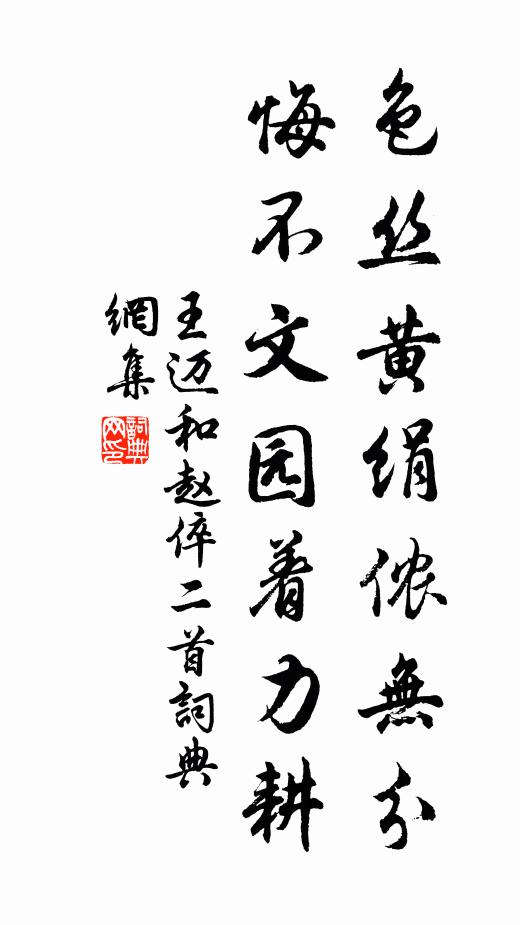 色丝黄绢侬無分
悔不文园着力耕
王迈和赵倅二首詞典
網集
詞典
网印